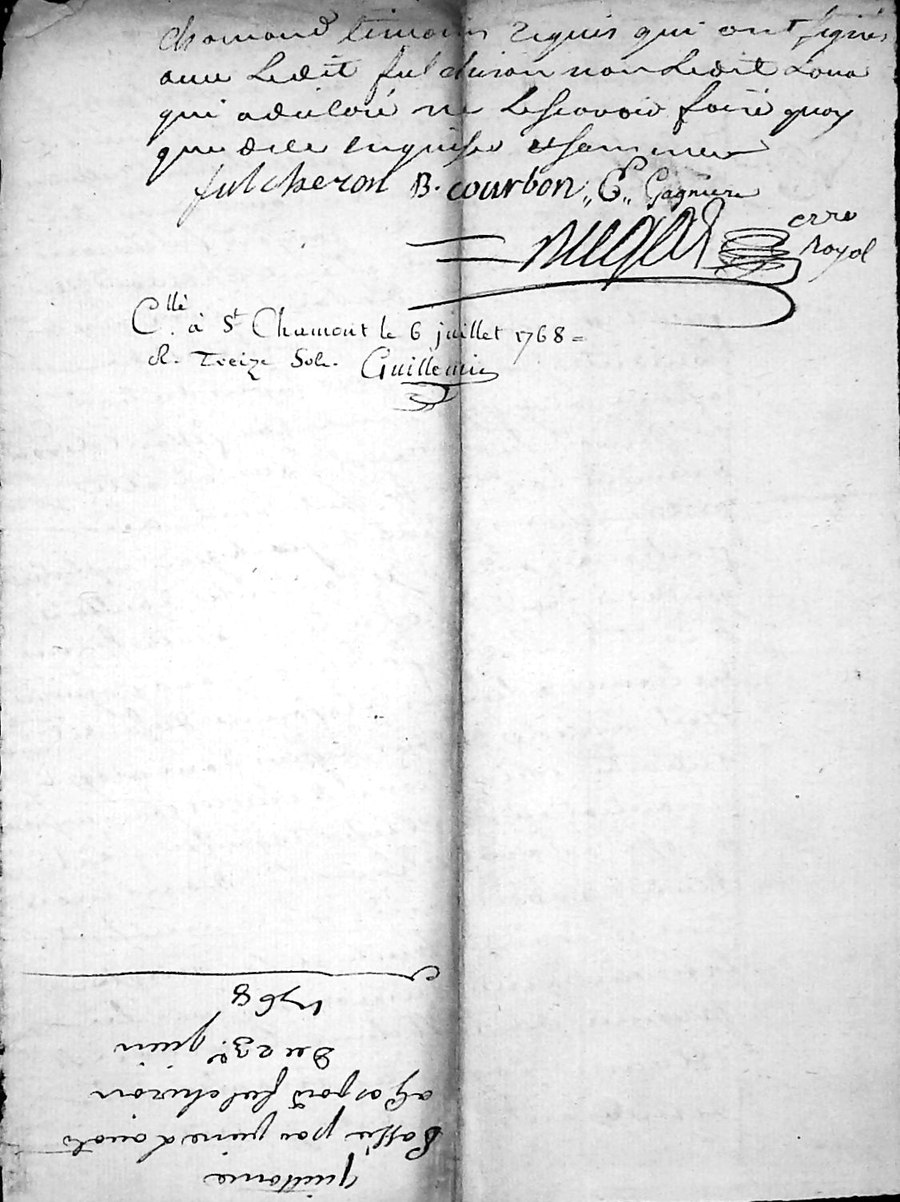 chamond témoins requis qui ont signés
avec Ledit fulchiron non Ledit
qui a déclaré ne Le scavoir faire quoy
que de ce enquise et sommée
fulcheron B. courbon „ C „ Gagniere
Royal
C.llé à St Chamont le 6 juillet 1768 =
R. Treize Sols. Guillemin
quittance
Passée par
a Gaspard fulchiron
Du 23e. juin
1768